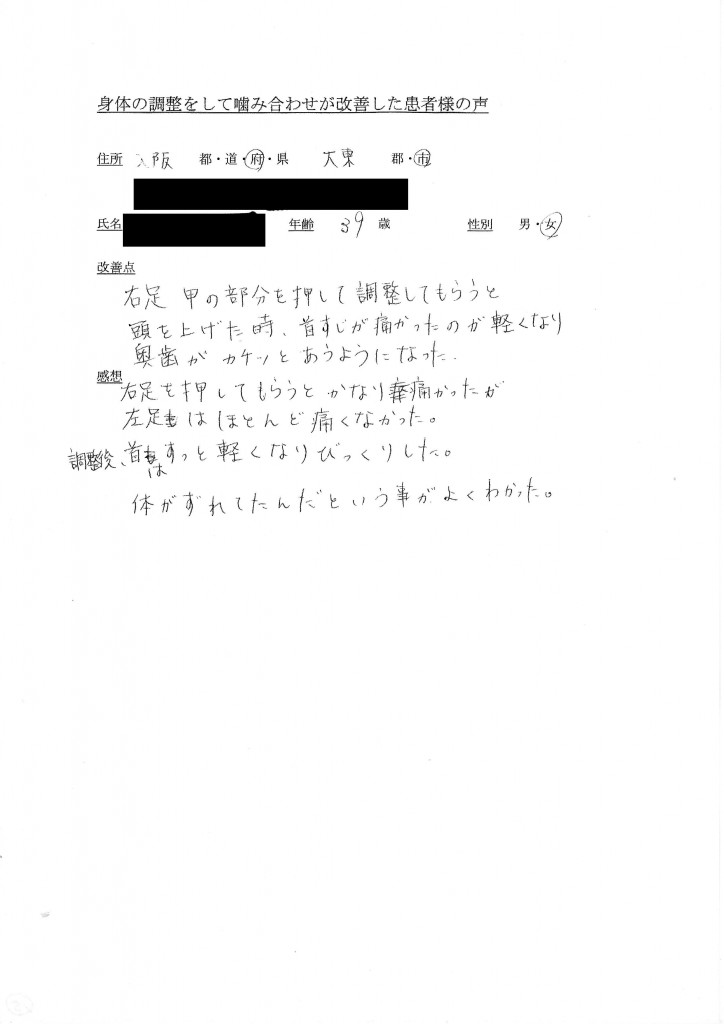 身体の調整をして噛み合わせが改善した患者様の声
住所 大阪 都・道・府・県 大東 郡・市
氏名 年齢 39 歳 性別 男・女
改善点
右足 甲の部分を押して調整してもらうと
頭を上げた時、首すじが痛かったのが軽くなり
奥歯がカケッとあうようになった.
感想
右足を押してもらうとかなり痛かったが
左足はほとんど痛くなかった。
調整後、首はすっと軽くなりびっくりした。
体がずれてたんだという事がよくわかった。